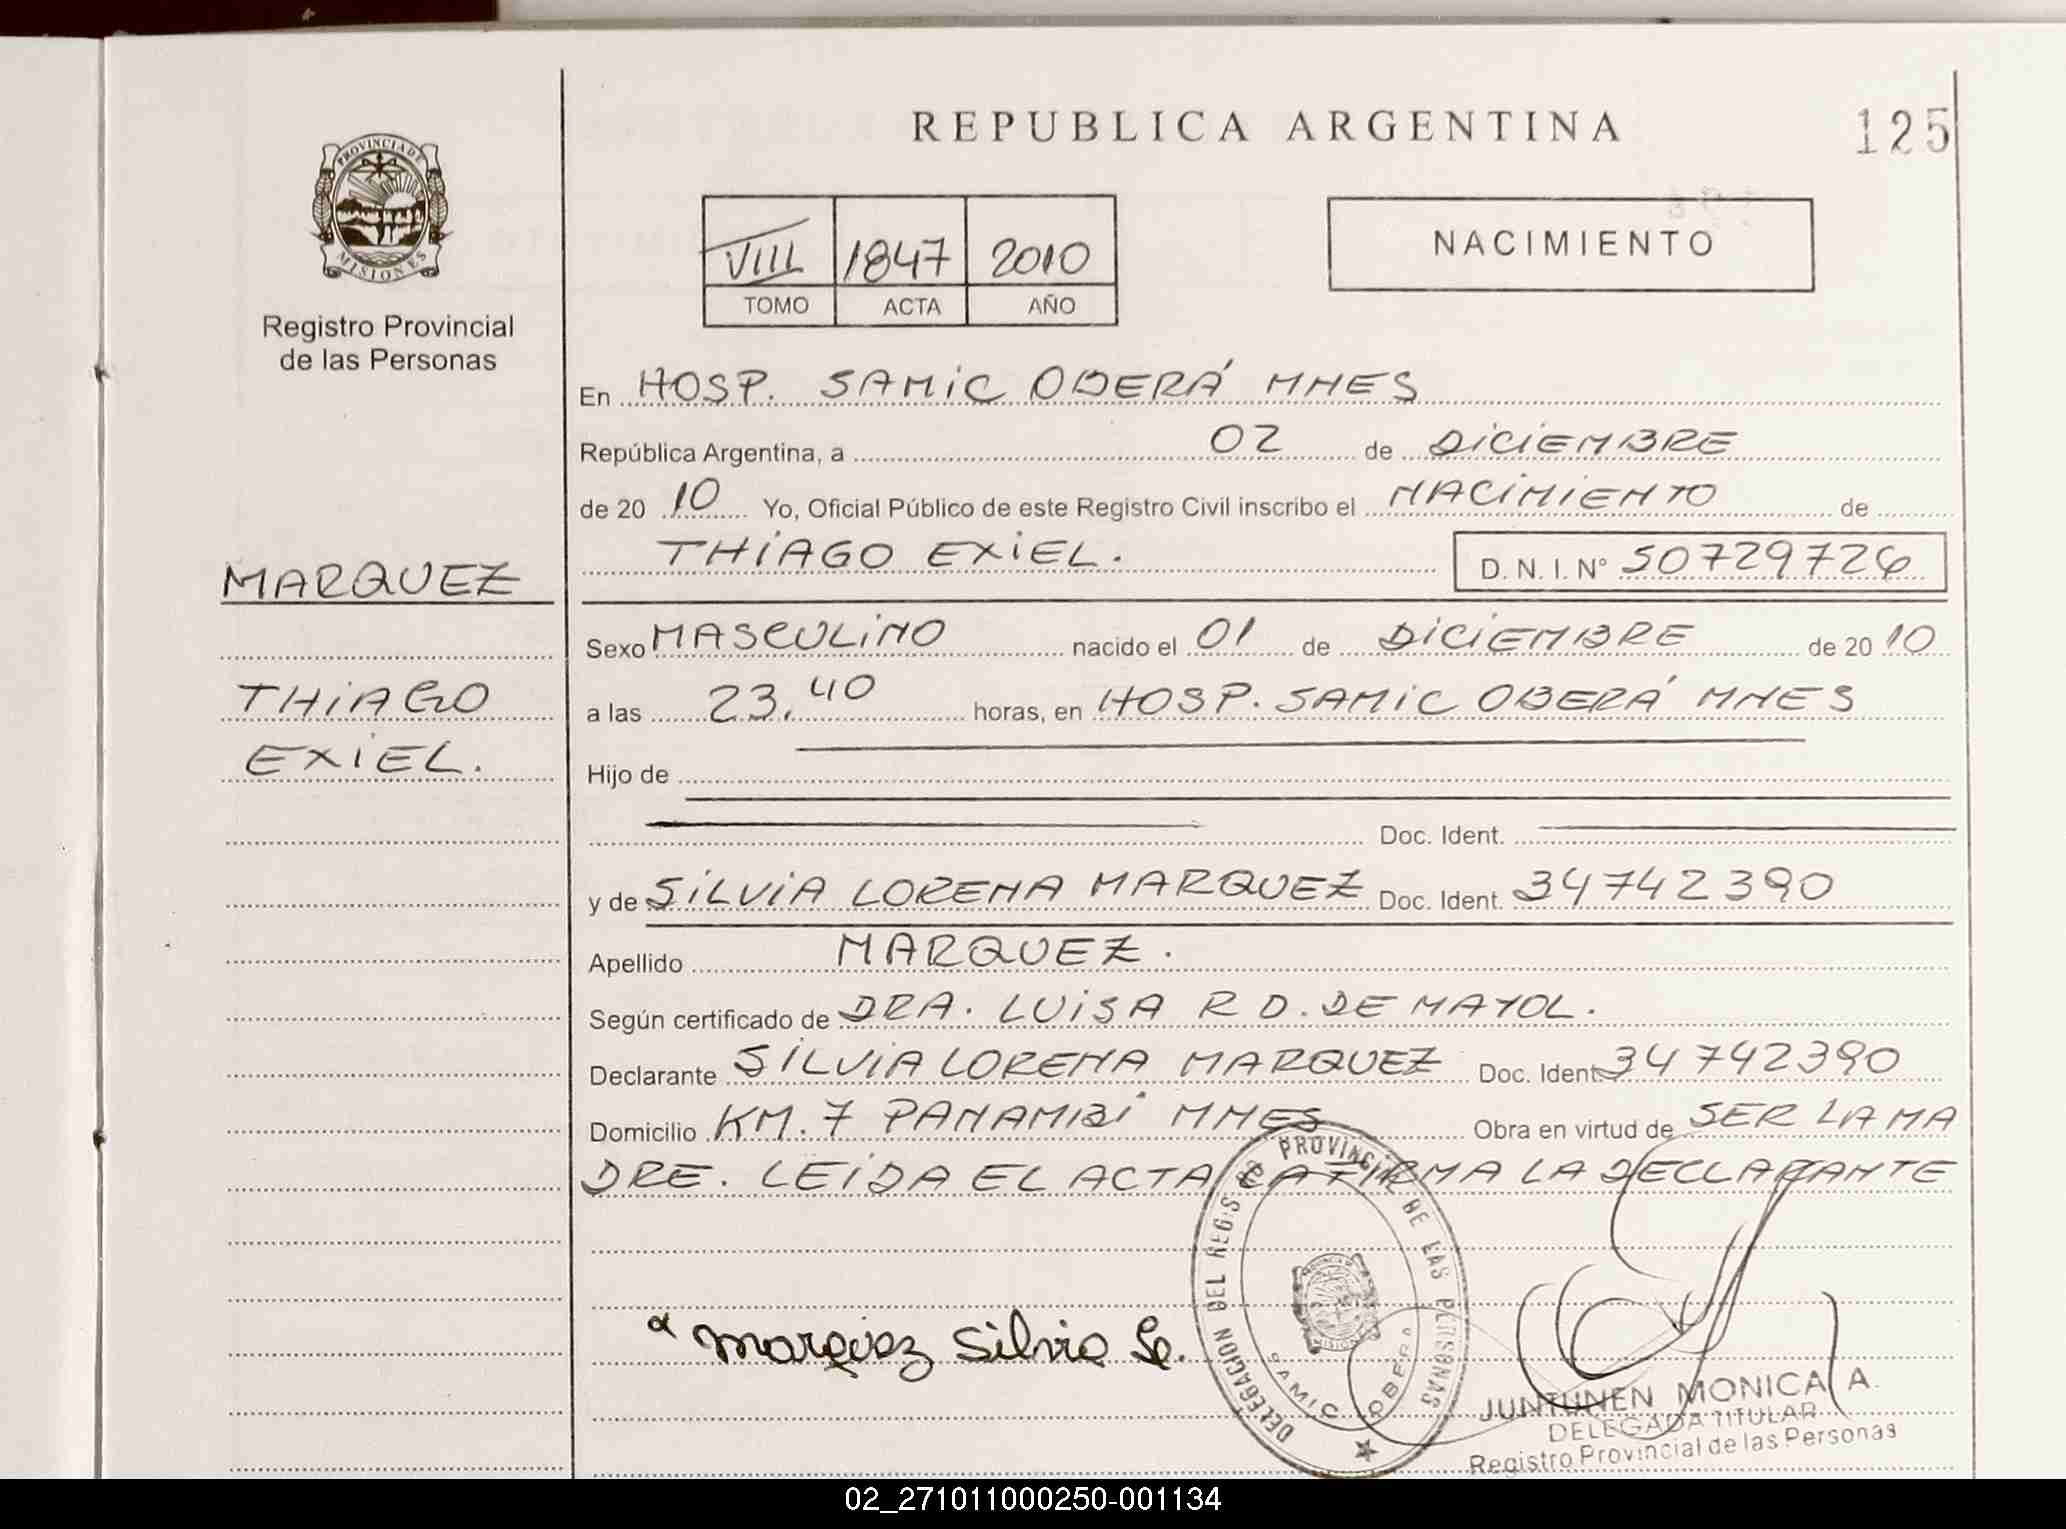 REPUBLICA ARGENTINA
125
PROVINCIA DE
MISIONES
Registro Provincial
de las Personas
VIII 1847 2010
TOMO ACTA AÑO
NACIMIENTO
En HOSP. SAMIC OBERÁ MNES
República Argentina, a 02 de DICIEMBRE
de 20 10 Yo, Oficial Público de este Registro Civil inscribo el NACIMIENTO de
THIAGO EXIEL. D. N. I. N° 50729726
MARQUEZ
THIAGO
EXIEL.
Sexo MASCULINO nacido el 01 de DICIEMBRE de 20 10
a las 23,40 horas, en HOSP. SAMIC OBERÁ MNES
Hijo de
Doc. Ident.
y de SILVIA LORENA MARQUEZ Doc. Ident. 34742390
Apellido MARQUEZ.
Según certificado de DRA. LUISA R D. DE MAYOL.
Declarante SILVIA LORENA MARQUEZ Doc. Ident. 34742390
Domicilio KM. 7 PANAMBÍ MNES Obra en virtud de SER LA MA
DRE. LEIDA EL ACTA LA FIRMA LA DECLARANTE
Marquez Silvia Lo.
DELEGACION DEL REGIS RO PROVINCIAL DE LAS PERSONAS
SAMIC OBERA
JUNTUNEN MONICA A.
DELEGADA TITULAR
Registro Provincial de las Personas
02_271011000250-001134